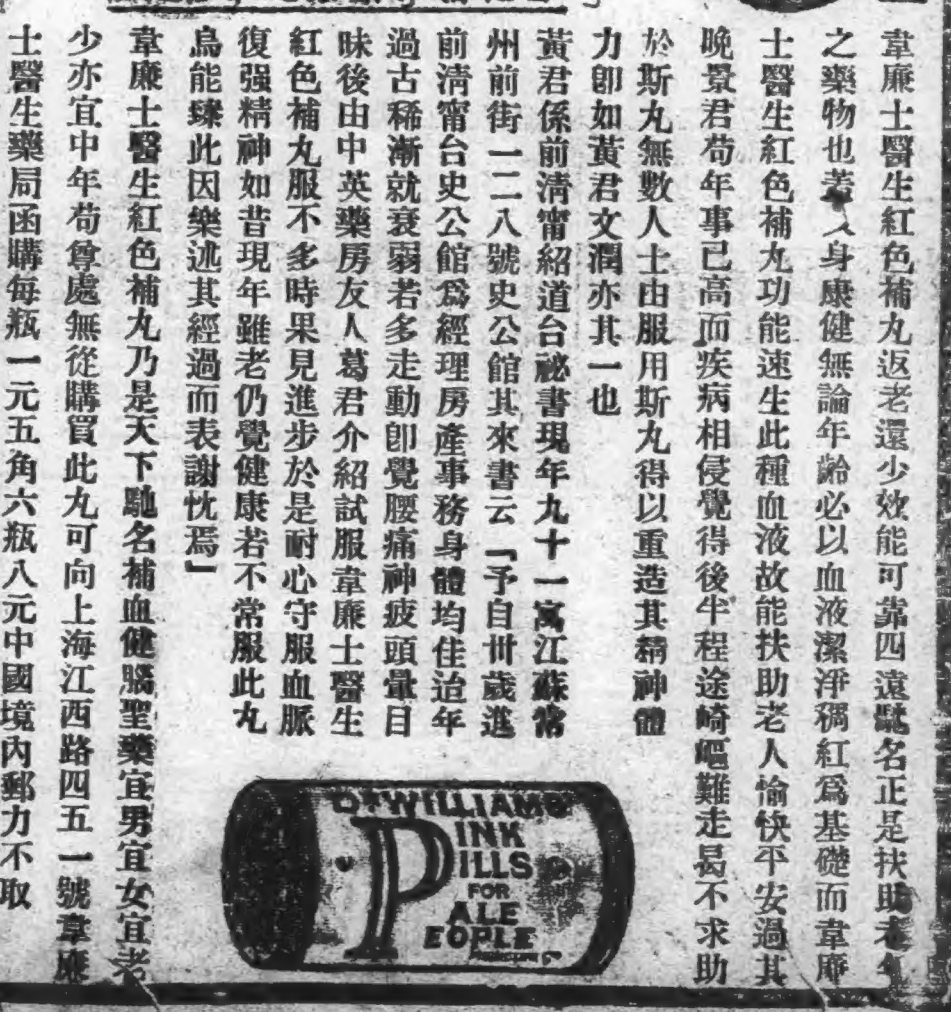 韋廉士醫生紅色補丸返老還少效能可靠四遠馳名正是扶助老年
之藥物也蓋人身康健無論年齡必以血液潔淨稠紅爲基礎而韋廉
士醫生紅色補丸功能速生此種血液故能扶助老人愉快平安過其
晚景君苟年事已高而疾病相侵覺得後半程途崎嶇難走曷不求助
於斯丸無數人士由服用斯丸得以重造其精神體
力卽如黃君文潤亦其一也
黃君係前淸甯紹道台祕書現年九十一寓江蘇常
州前街一二八號史公館其來書云「予自卅歲進
前淸甯台史公館爲經理房產事務身體均佳迨年
過古稀漸就衰弱若多走動卽覺腰痛神疲頭暈目
昧後由中英藥房友人葛君介紹試服韋廉士醫生
紅色補丸服不多時果見進步於是耐心守服血脈
復强精神如昔現年雖老仍覺健康若不常服此丸
烏能臻此因樂述其經過而表謝忱焉」
韋廉士醫生紅色補丸乃是天下馳名補血健腦聖藥宜男宜女宜老
少亦宜中年苟尊處無從購買此丸可向上海江西路四五一號韋廉
士醫生藥局函購每瓶一元五角六瓶八元中國境內郵力不取
DR WILLIAMS
PINK
PILLS
FOR
PALE
PEOPLE